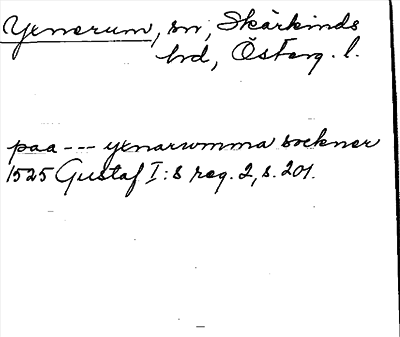 Yxnerum, sn, Skärkinds
hd, Österg. l.
paa --- yxnarwmma sockner
1525 Gustaf I:s reg. 2, s. 201.